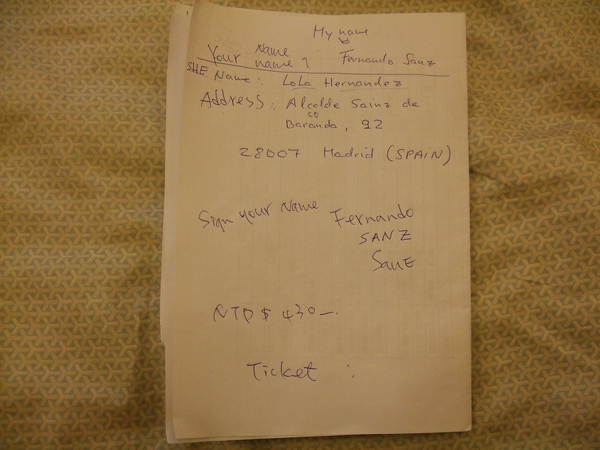 My name
Name
Your name? Fernando Sanz
SHE Name: LoLa Hernandez
Address: Alcalde Sainz de
Baranda, 92
28007 Madrid (SPAIN)
Sign your Name Fernando
SANZ
NTD $ 430—.
Ticket :